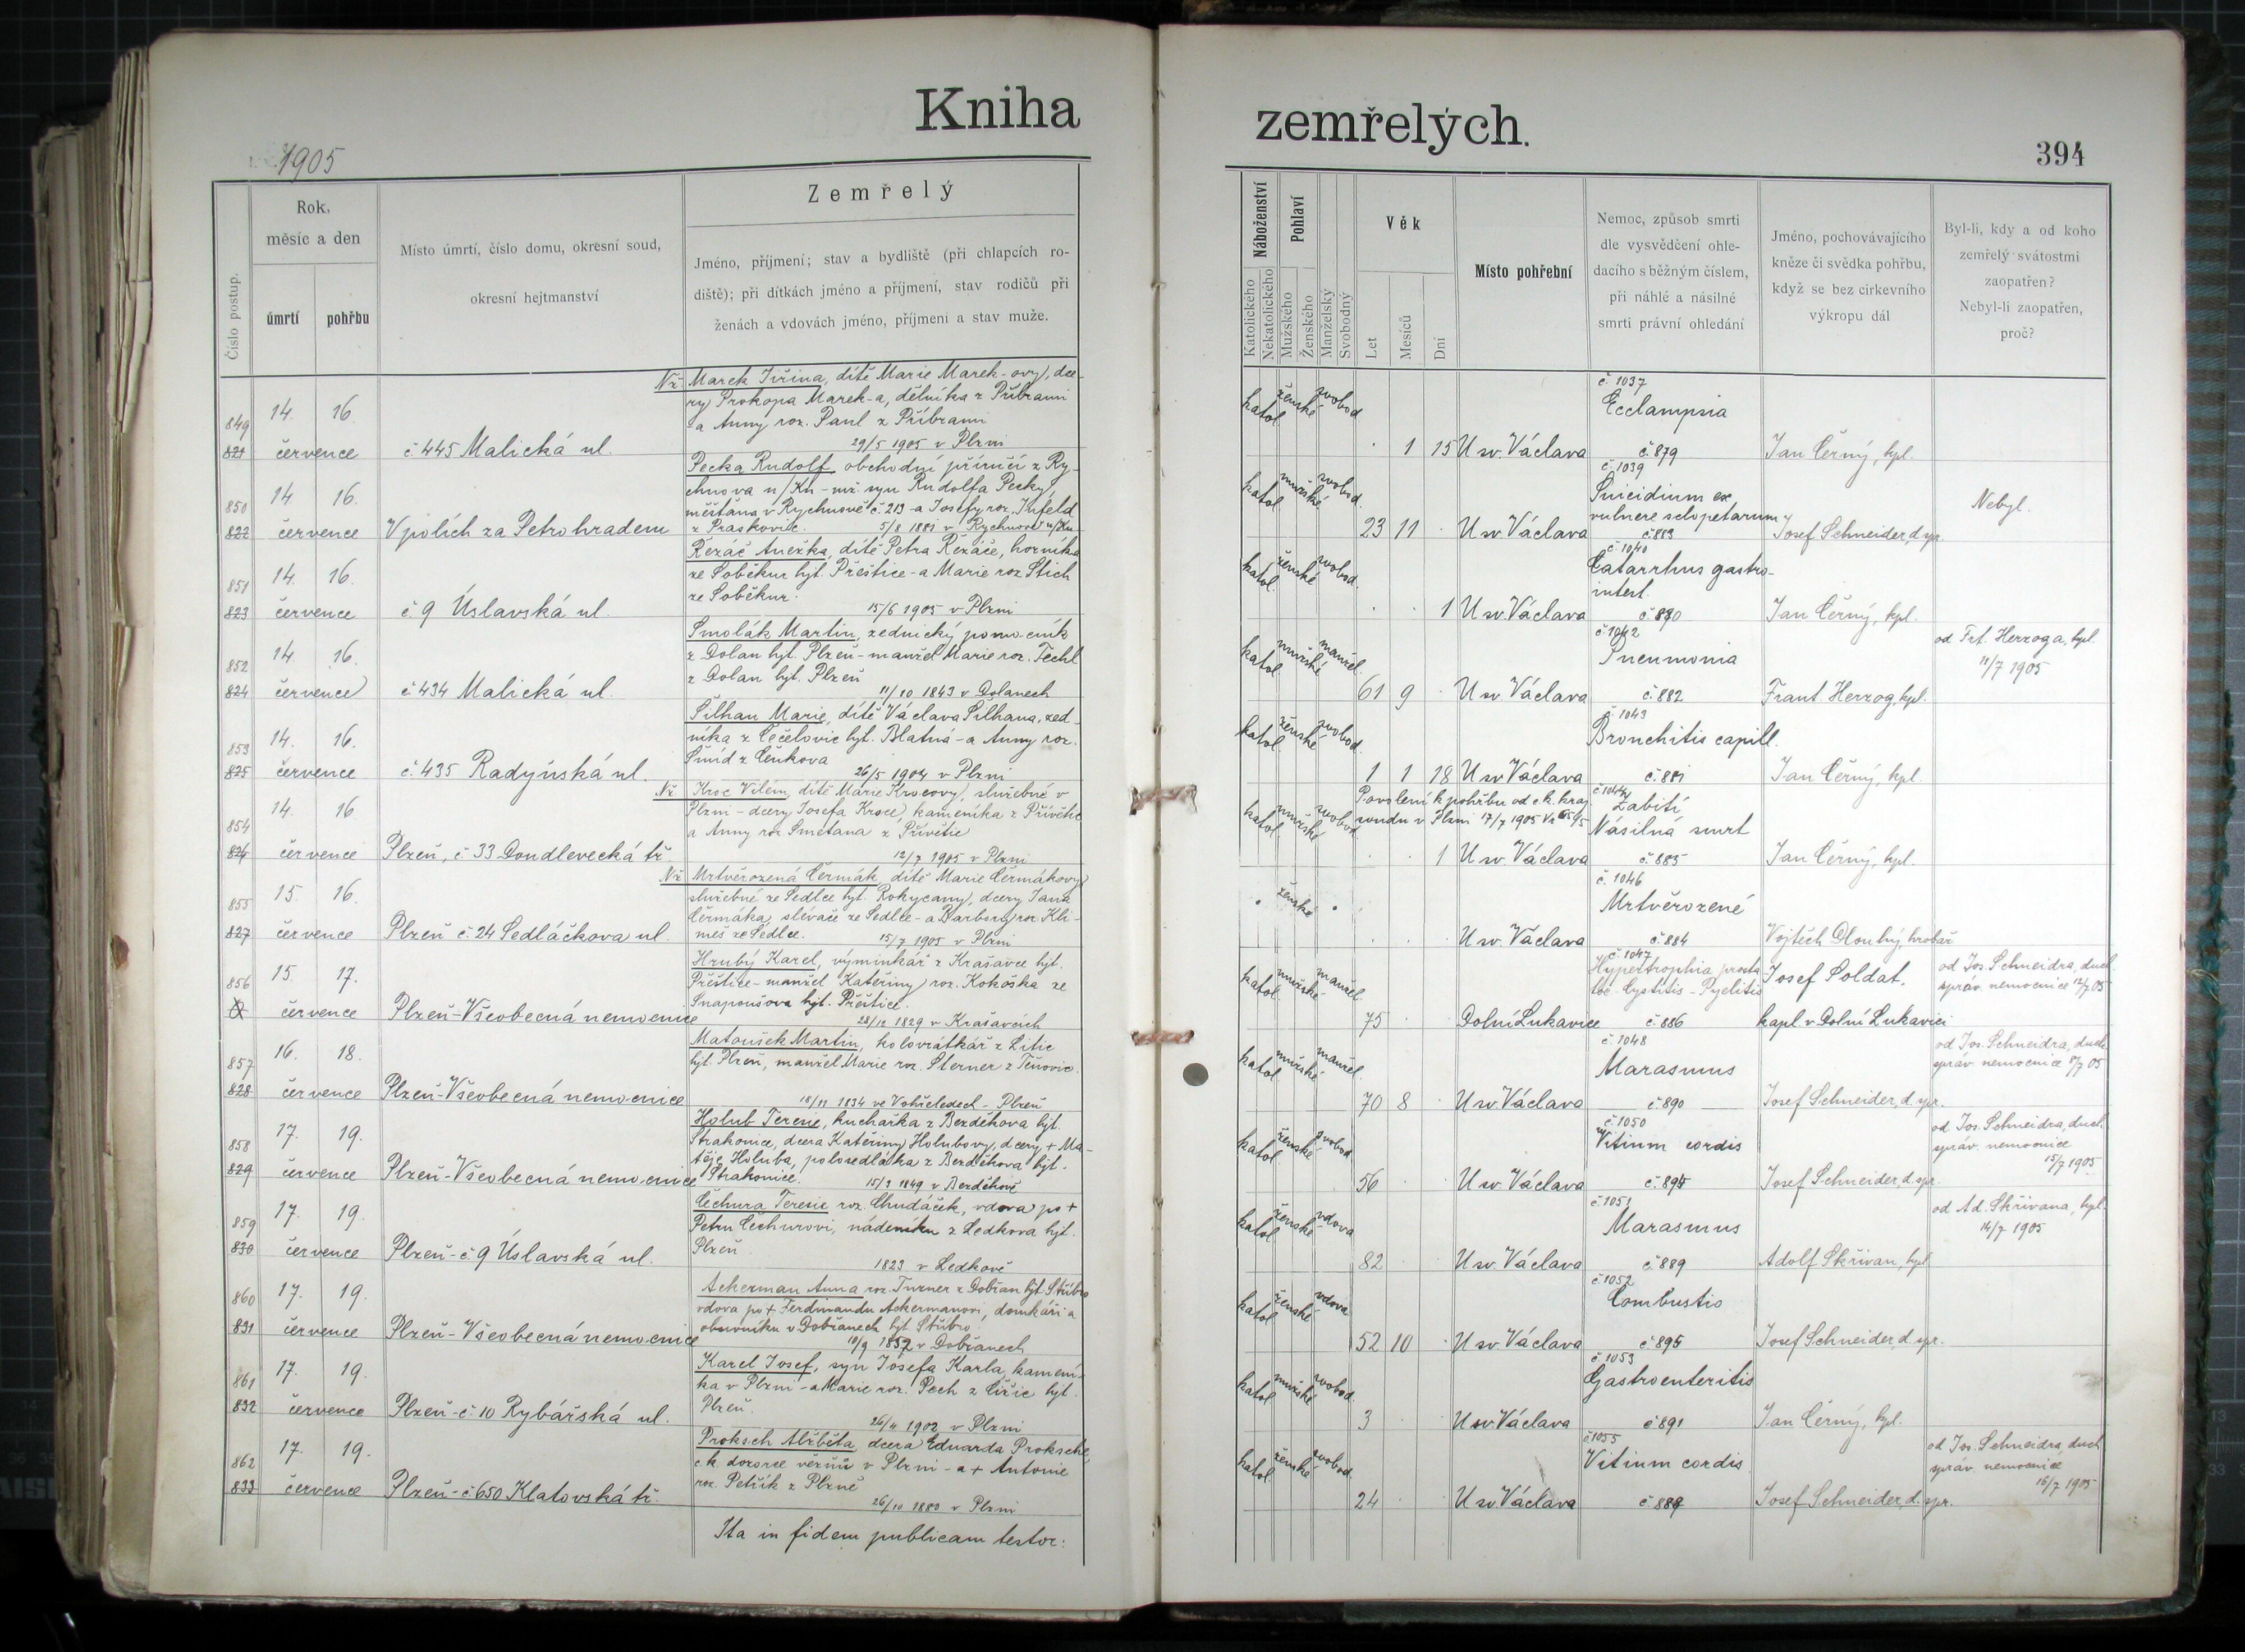 Kniha
1905
Číslo postup.
Rok,
měsíc a den
úmrtí
pohřbu
Místo úmrtí, číslo domu, okresní soud,
okresní hejtmanství
Zemřelý
Jméno, příjmení; stav a bydliště (při chlapcích ro-
diště); při dítkách jméno a příjmení, stav rodičů při
ženách a vdovách jméno, příjmení a stav muže.
849
821
14 16.
července
č. 445 Malická ul.
Nž Marek Jiřina, dítě Marie Marek-ovy, dce-
ry Prokopa Marek-a, dělníka z Příbrami
a Anny roz. Paul z Příbrami
29/5 1905 v Plzni
850
822
14 16.
července
V polích za Petrohradem
Pecka Rudolf, obchodní příručí z Ry-
chnova n/Kn - mž. syn Rudolfa Pecky,
měšťana v Rychnově č. 213 - a Josefy roz.
z Praskovic. 5/8 1881 v Rychnově n/Kn
851
823
14. 16.
července
č. 9 Úslavská ul.
Řezáč Anežka, dítě Petra Řezáče, horníka
ze Soběkur hjt. Přeštice - a Marie roz. Stich
ze Soběkur.
15/6 1905 v Plzni
852
824
14. 16.
července
č 434 Malická ul.
Smolák Martin, zednický pomocník
z Dolan hjt. Plzeň - manžel Marie roz. Techl
z Dolan hjt. Plzeň
11/10 1843 v Dolanech
853
825
14. 16.
července
č. 435 Radyňská ul.
Silhan Marie, dítě Václava Silhana, zed-
níka z Čečelovic hjt. Blatná - a Anny roz.
Šmíd z Čenkova
26/5 1904 v Plzni
854
826
14. 16
července
Plzeň, č 33 Doudlevecká tř.
Nž. Kroc Vilém, dítě Marie Krocovy, služebné v
Plzni - dcery Josefa Kroce, kameníka z Přívětic
a Anny roz Smetana z Přívětic
12/7 1905 v Plzni
855
827
15. 16.
července
Plzeň č. 24 Sedláčkova ul.
Nž Mrtvěrozená Čermák, dítě Marie Čermákovy,
služebné ze Sedlce hjt. Rokycany, dcery Jana
Čermáka, slévače ze Sedlce - a Barbory roz. Kli-
meš ze Sedlce. 15/7 1905 v Plzni
856
15. 17.
července
Plzeň-Všeobecná nemocnice
Hrubý Karel, výminkář z Krašavce hjt.
Přeštice - manžel Kateřiny roz. Kokoška ze
Snapoušova hjt. Přeštice.
28/12 1829 v Krašavcích
857
828
16. 18.
července
Plzeň-Všeobecná nemocnice
Matoušek Martin, kolovrátkář z Litic
hjt. Plzeň, manžel Marie roz. Sterner z Těnovic.
18/11 1834 ve Vohřeledech - Plzeň
858
829
17. 19.
července
Plzeň-Všeobecná nemocnice
Holub Terezie, kuchařka z Bezděkova hjt.
Strakonice, dcera Kateřiny Holubovy, dcery + Ma-
těje Holuba, polosedláka z Bezděkova hjt.
Strakonice. 15/9 1849 v Bezděkově
859
830
17. 19.
července
Plzeň - č 9 Úslavská ul.
Čechura Terezie roz. Chudáček, vdova po +
Petru Čechurovi, nádeníku z Ledkova hjt.
Plzeň
1823 v Ledkově
860
831
17. 19.
července
Plzeň - Všeobecná nemocnice
Ackerman Anna roz. Turner z Dobřan hjt. Stříbro
vdova po + Ferdinandu Ackermanovi, domkáři a
obuvníku v Dobřanech hjt Stříbro.
10/9 1852 v Dobřanech
861
832
17. 19.
července
Plzeň - č. 10 Rybářská ul.
Karel Josef, syn Josefa Karla, kamení-
ka v Plzni - a Marie roz. Pech z Čižic hjt.
Plzeň.
26/4 1902 v Plzni
862
833
17. 19.
července
Plzeň - č. 650 Klatovská tř.
Proksch Alžběta, dcera Eduarda Proksche,
c.k. dozorce vězňů v Plzni - a + Antonie
roz. Petřík z Plzně
26/10 1880 v Plzni
Ita in fidem publicam testor:
zemřelých.
394
Náboženství
Katolického
Nekatolického
Pohlaví
Mužského
Ženského
Manželský
Svobodný
Věk
Let
Měsíců
Dní
Místo pohřební
Nemoc, způsob smrti
dle vysvědčení ohle-
dacího s běžným číslem,
při náhlé a násilné
smrti právní ohledání
Jméno, pochovávajícího
kněze či svědka pohřbu,
když se bez církevního
výkropu dál
Byl-li, kdy a od koho
zemřelý svátostmi
zaopatřen?
Nebyl-li zaopatřen,
proč?
katol. ženské svobod.
1 15 U sv. Václava
č. 1037
Ecclampsia
č. 879
Jan Černý, kpl.
katol. mužské svobod.
23 11 U sv. Václava
č. 1039
Suicidium ex
vulnere sclopetarum
č. 883
Josef Schneider, d. spr.
Nebyl.
katol. ženské svobod.
1 U sv. Václava
č. 1040
Catarrhus gastro-
intest.
č. 880
Jan Černý, kpl.
katol. mužské manžel.
61 9 U sv. Václava
č. 1042
Pneumonia
č. 882
Frant. Herzog, kpl.
od Frt. Herzoga, kpl.
11/7 1905
katol. ženské svobod.
1 1 18 U sv Václava
č. 1043
Bronchitis capill.
č. 881
Jan Černý, kpl.
katol. mužské svobod.
Povolení k pohřbu od c.k. kraj.
soudu v Plzni 17/7 1905
1 U sv. Václava
č. 1044
Zabití
Násilná smrt
č. 885
Jan Černý, kpl.
ženské
U sv. Václava
č. 1046
Mrtvěrozené
č. 884
Vojtěch Dlouhý hrobař
katol. mužské manžel.
75 Dolní Lukavice
č. 1047
Hypertrophia prosta-
tae - Cystitis - Pyelitis
č. 886
Josef Soldat,
kapl. v Dolní Lukavici
od Jos. Schneidra, duch.
správ. nemocnice 12/7 05
katol. mužské manžel.
70 8 U sv. Václava
č. 1048
Marasmus
č. 890
Josef Schneider, d. spr.
od Jos. Schneidra, duch.
správ. nemocnice 8/7 05
katol. ženské svobod.
56 U sv. Václava
č. 1050
Vitium cordis
č. 894
Josef Schneider, d. spr.
od Jos. Schneidra, duch.
správ. nemocnice
15/7 1905
katol. ženské vdova
82 U sv. Václava
č. 1051
Marasmus
č. 889
Adolf Skřivan, kpl
od Ad. Skřivana, kpl.
14/7 1905
katol. ženské vdova
52 10 U sv. Václava
č. 1052
Combustio
č. 895
Josef Schneider, d. spr.
katol. mužské svobod.
3 U sv Václava
č. 1053
Gastroenteritis
č 891
Jan Černý, kpl.
katol. ženské svobod.
24 U sv. Václava
č. 1055
Vitium cordis
č 887
Josef Schneider, d. spr.
od Jos. Schneidra, duch
správ. nemocnice
16/7 1905